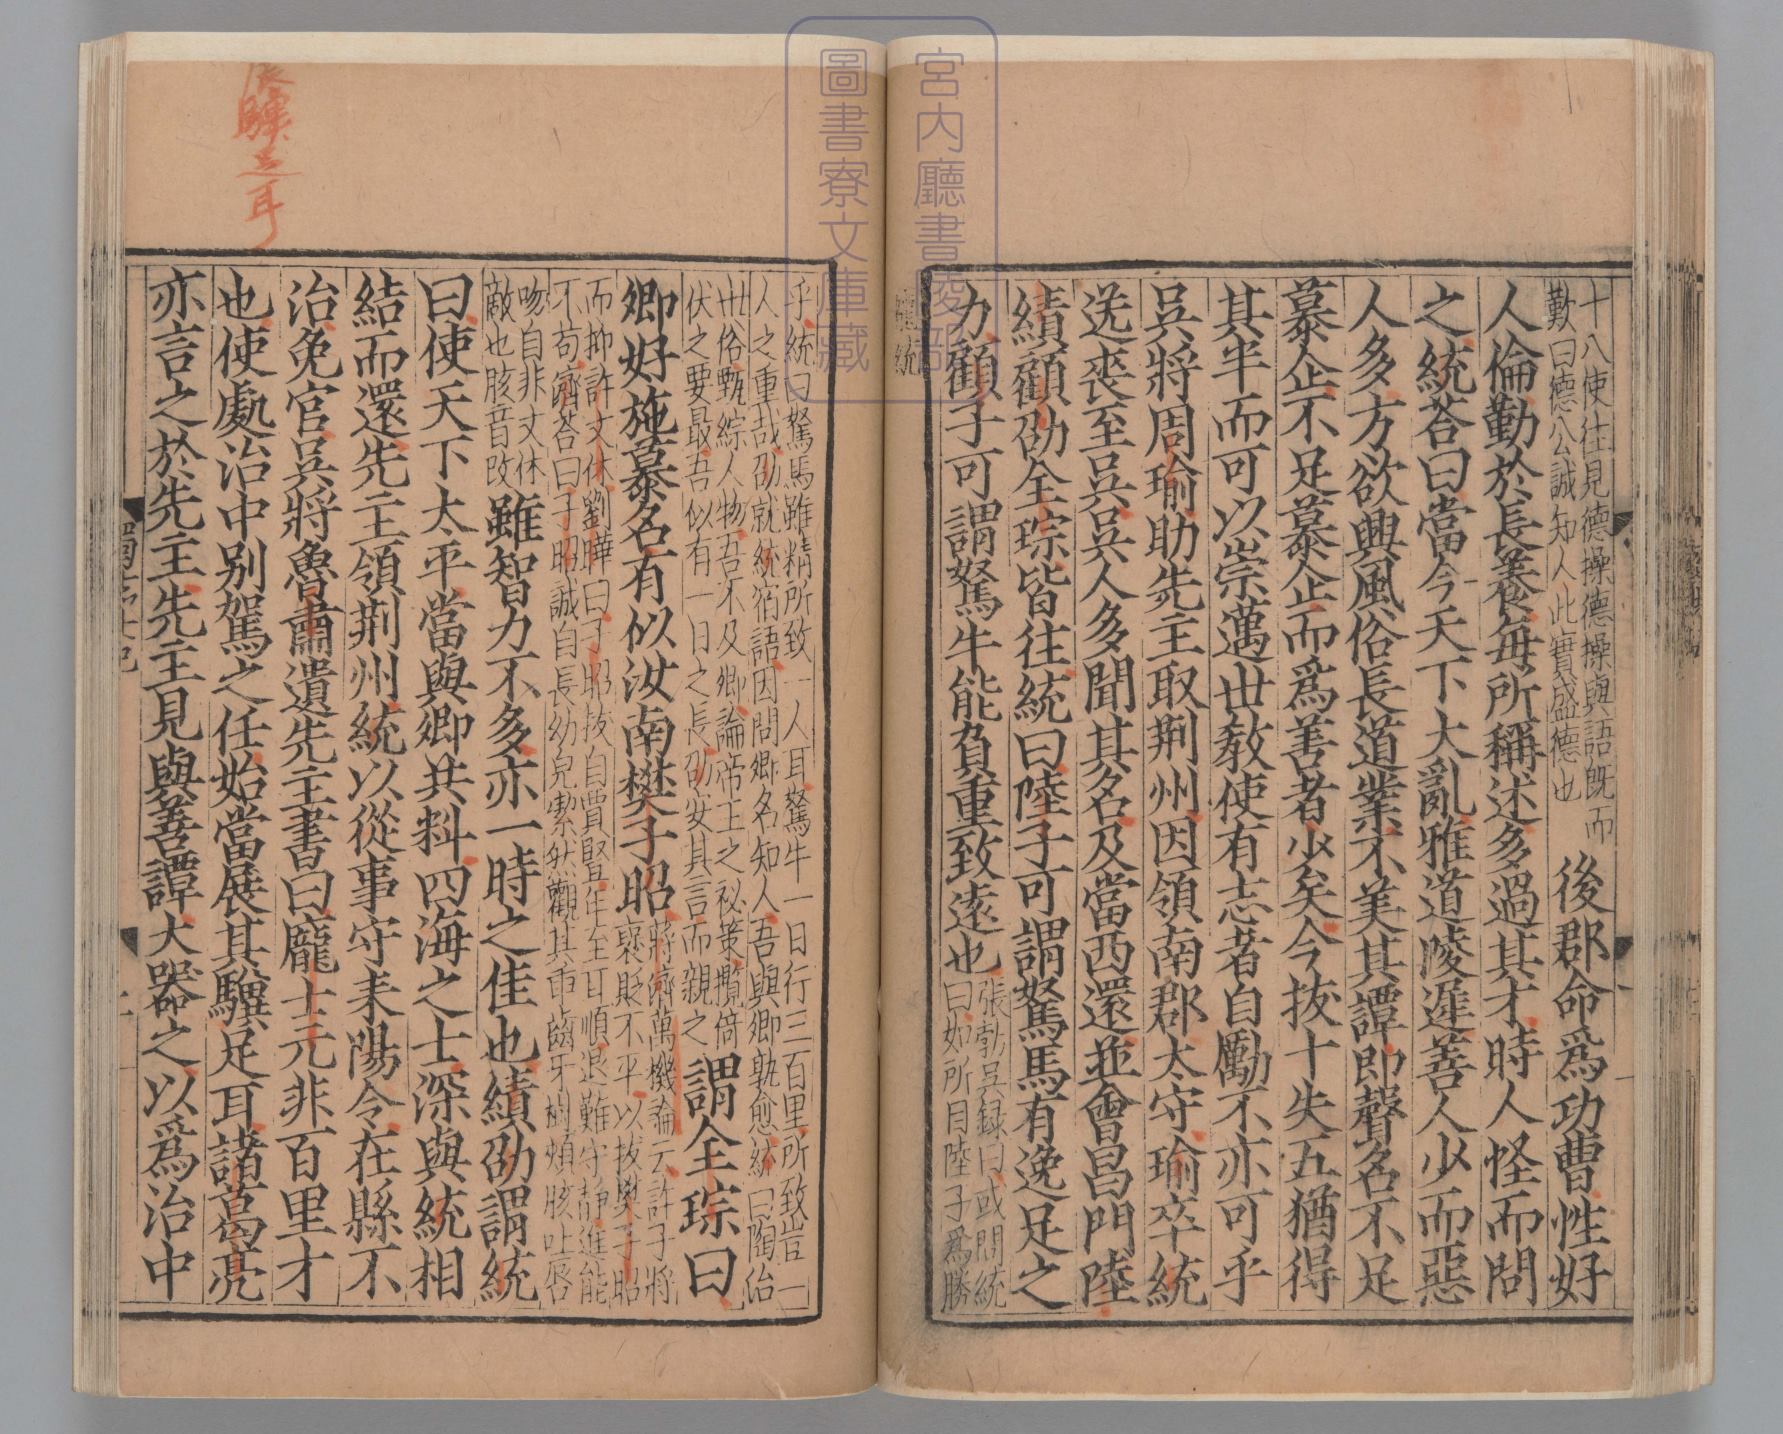 十八使往見德操德操與語既而
歎曰德公誠知人此實盛德也
後郡命爲功曹性好
人倫勤於長養每所稱述多過其才時人怪而問
之統荅曰當今天下大亂雅道陵遲善人少而惡
人多方欲興風俗長道業不美其譚即聲名不足
慕企不足慕企而爲善者少矣今拔十失五猶得
其半而可以崇邁世敎使有志者自勵不亦可乎
吳將周瑜助先主取荆州因領南郡太守瑜卒統
送喪至吳吳人多聞其名及當西還並會昌門陸
績顧劭全琮皆往統曰陸子可謂駑馬有逸足之
力顧子可謂駑牛能負重致遠也
張勃吳録曰或問統
曰如所目陸子爲勝
龐統
宮内廳書陵部
圖書寮文庫藏
乎統曰駑馬雖精所致一人耳駑牛一日行三百里所致豈一
人之重哉劭就統宿語因問卿名知人吾與卿孰愈統曰陶冶
世俗甄綜人物吾不及卿論帝王之祕策攬倚
伏之要最吾似有一日之長劭安其言而親之
謂全琮曰
卿好施慕名有似汝南樊子昭
蔣濟萬機論云許子將
襃貶不平以拔樊子昭
而抑許文休劉曄曰子昭拔自賈豎年至耳順退難守靜進能
不苟濟荅曰子昭誠自長幼皃絜然觀其臿齒牙樹頰胲吐唇
吻自非文休
敵也胲音改
雖智力不多亦一時之佳也績劭謂統
曰使天下太平當與卿共料四海之士深與統相
結而還先主領荆州統以從事守耒陽令在縣不
治免官吳將魯肅遺先主書曰龐士元非百里才
也使處治中别駕之任始當展其驥足耳諸葛亮
亦言之於先主先主見與善譚大器之以爲治中
展驥足耳